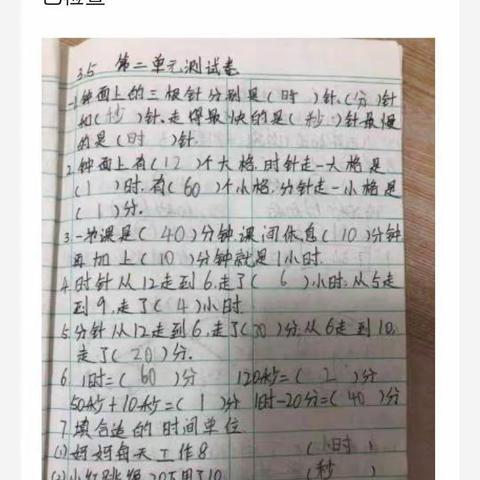 已检查
3.5 第二单元测试卷
一.钟面上的三根针分别是(时)针、(分)针
和(秒)针.走得最快的是(秒)针最慢
的是(时)针.
2.钟面上有(12)个大格.时针走一大格是
(1)时.有(60)个小格.分针走一小格是
(1)分.
3.一节课是(40)分钟.课间休息(10)分钟
再加上(10)分钟就是1小时.
4.时针从12走到6.走了(6)小时.从5走
到9.走了(4)小时.
5.分针从12走到6.走了(30)分.从6走到10.
走了(20)分.
6. 1时=(60)分 120秒=(2)分
50秒+10秒=(1)分 1时-20分=(40)分
7.填合适的时间单位
(1)妈妈每天工作8 (小时)
(2)小红跳绳20下用了10 (秒)